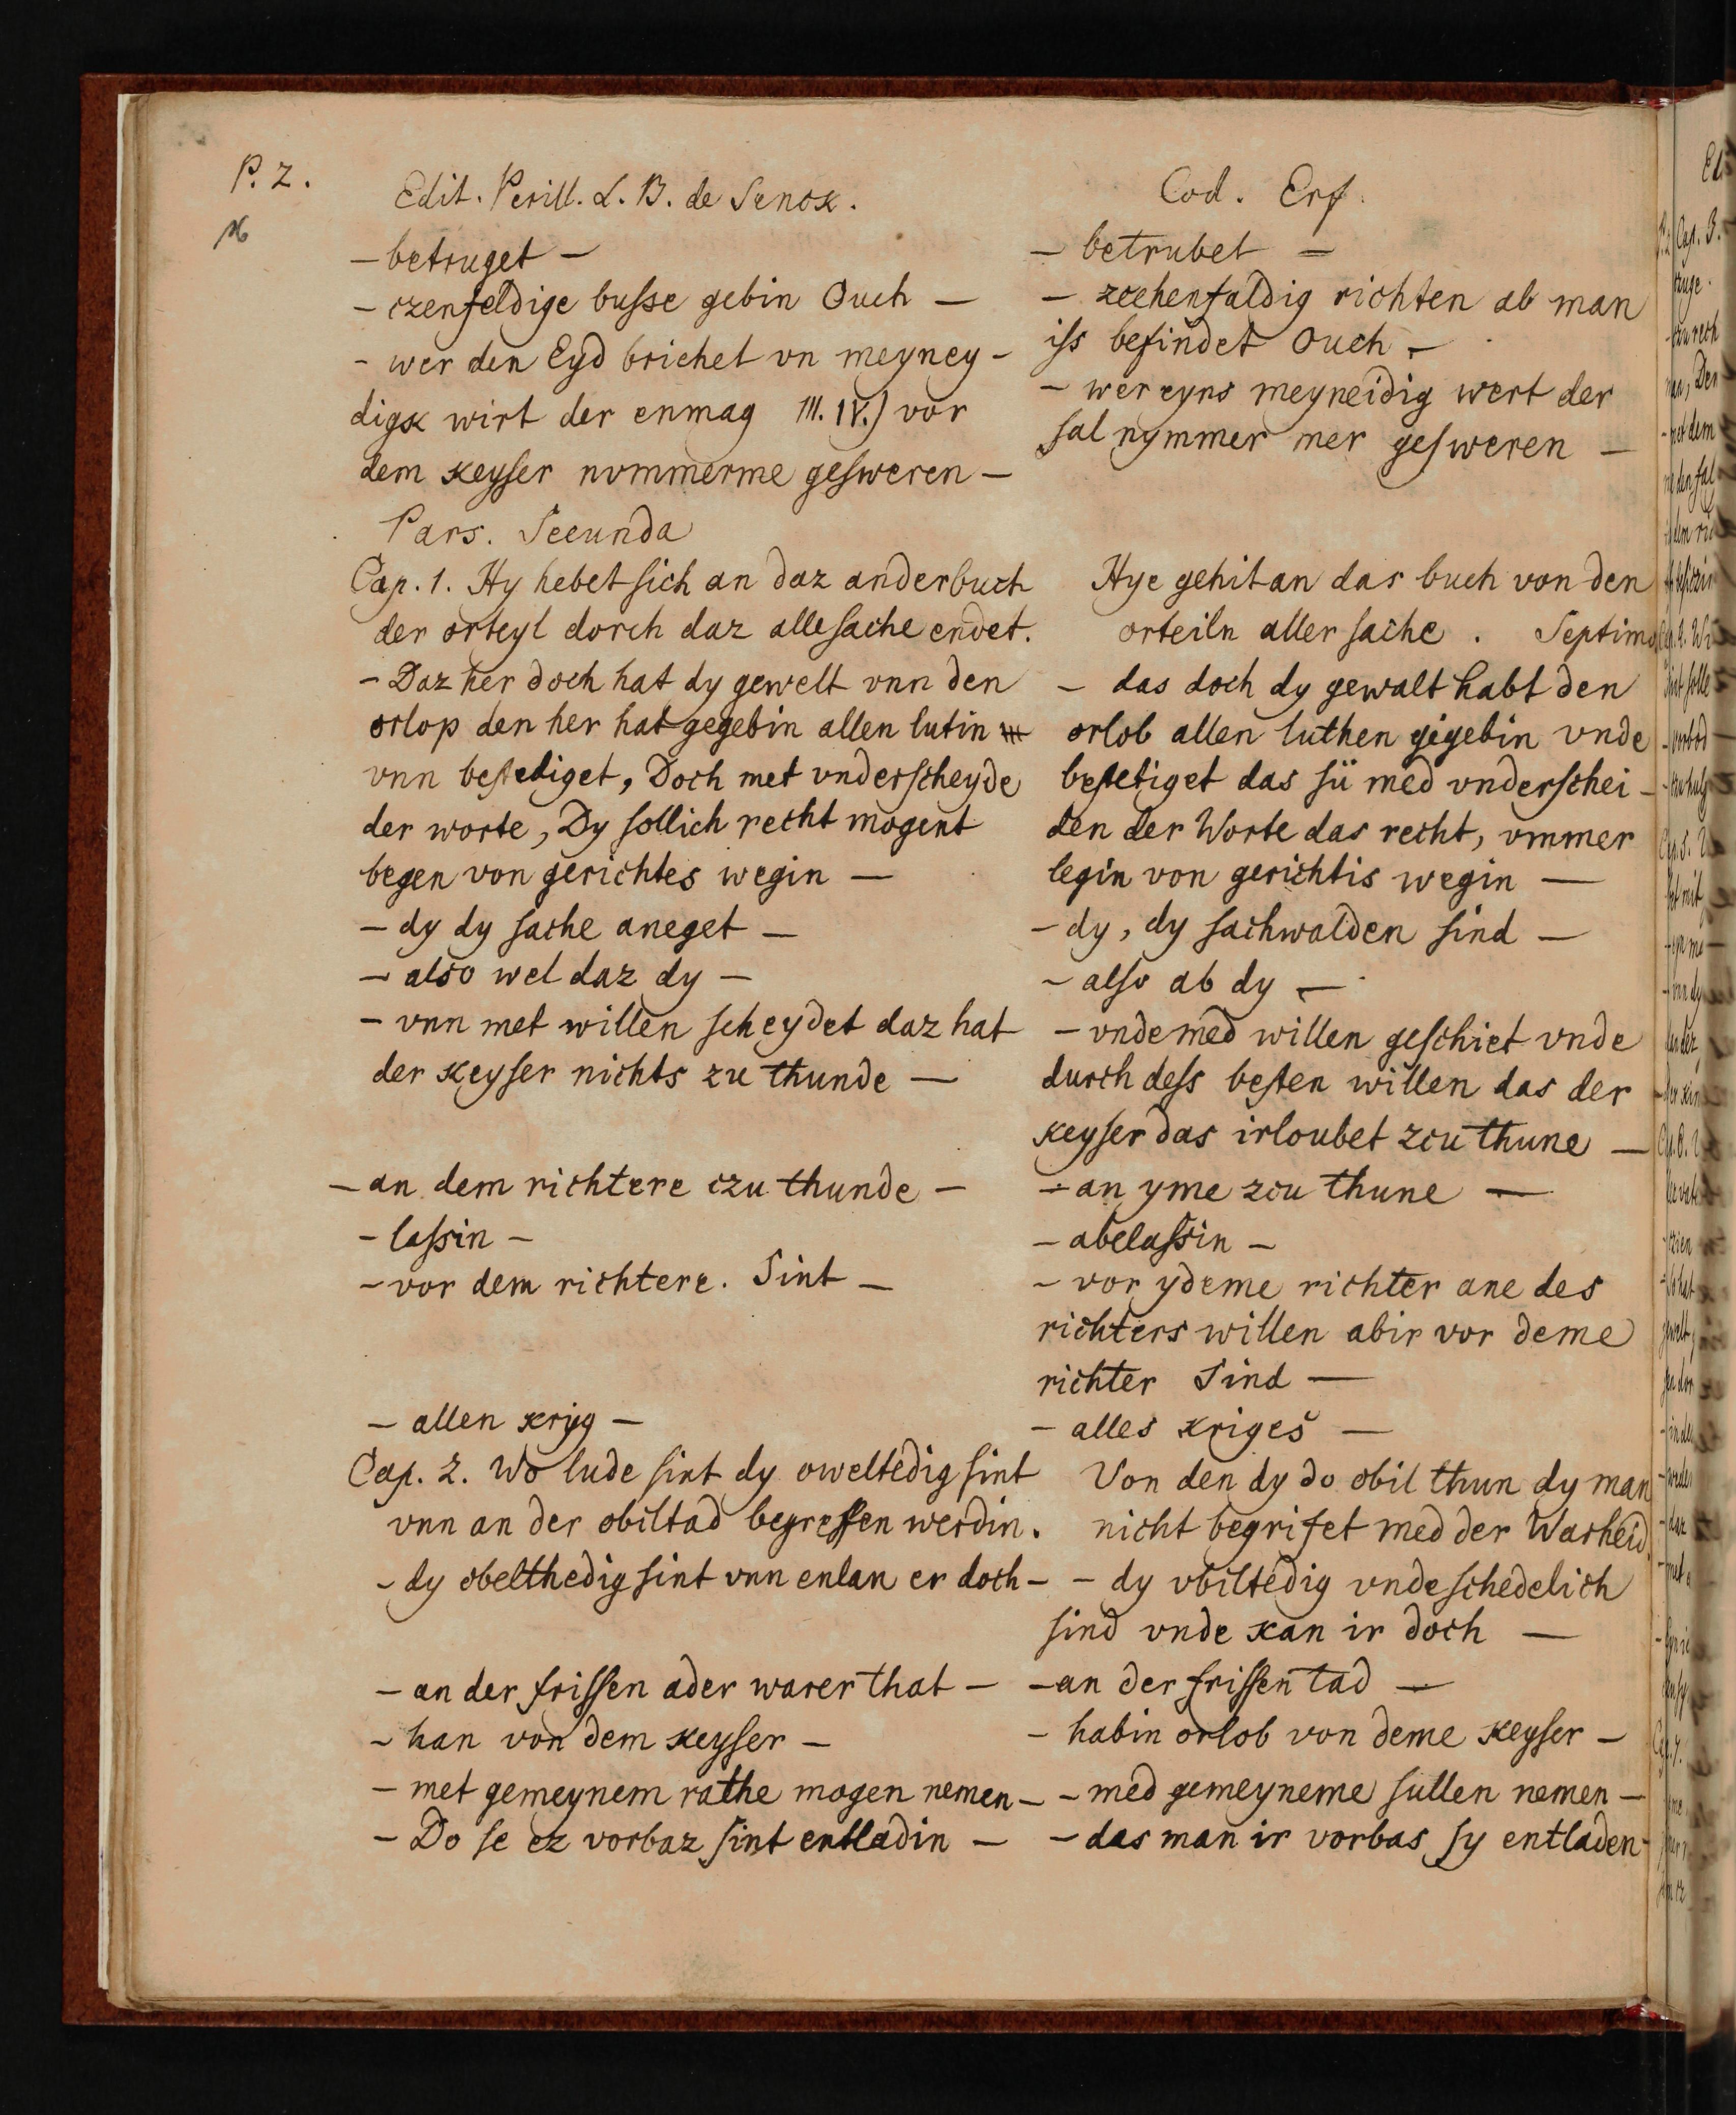 P. 2.
Edit. Perill. L. B. de Senck.
- betruget -
- czenfeldige busse gebin Ouch -
- wer den Eyd brichet vn meyney-
digk wirt der enmag III. IV.) vor
dem keyser nvmmerme gesweren -
Pars. Secunda
Cap. 1. Hy hebet sich an daz ander buch
der orteyl dorch daz alle sache endet.
- Daz her doch hat dy gewelt vnn den
orlop den her hat gegebin allen lutin
vnn bestediget, Doch met vnderscheyde
der worte, Dy sollich recht mogent
begen von gerichtes wegin -
- dy dy sache aneget -
- also wel daz dy -
- vnn met willen scheydet daz hat
der keyser nichts zu thunde -
- an dem richtere czu thunde -
- lassin -
- vor dem richtere. Sint -
- allen krijg -
Cap. 2. Wo lude sint dy oweltedig sint
vnn an der obiltad begreffen werdin.
- dy obelthedig sint vnn enlan er doch -
- an der frissen ader warer that -
- han von dem keyser -
- met gemeynem rathe mogen nemen -
- Do se ez vorbaz sint entladin -
Cod. Erf.
- betrubet -
- zcehenfaldig richten ab man
iss befindet Ouch -
- wer eyns meyneidig wert der
sal nymmer mer gesweren -
Hye gehit an das buch von den
orteiln aller sache . Septimo
- das doch dy gewalt habt den
orlob allen luthen gigebin vnde
bestetiget das sü med vnderschei-
den der Worte das recht, vmmer
legin von gerichtis wegin -
- dy, dy sachwalden sind -
- also ab dy -
- vnde med willen geschiet vnde
durch dess besten willen das der
keyser das irloubet zcu thune -
- an yme zcu thune -
- abelassin -
- vor ydeme richter ane des
richters willen abir vor deme
richter Sind -
- alles kriges -
Von den dy do obil thun dy man
nicht begrifet med der Warheid.
- dy vbiltedig vnde schedelich
sind vnde kan ir doch -
- an der frissen tad -
- habin orlob von deme keyser -
- med gemeyneme sullen nemen -
- das man ir vorbas sy entladen -